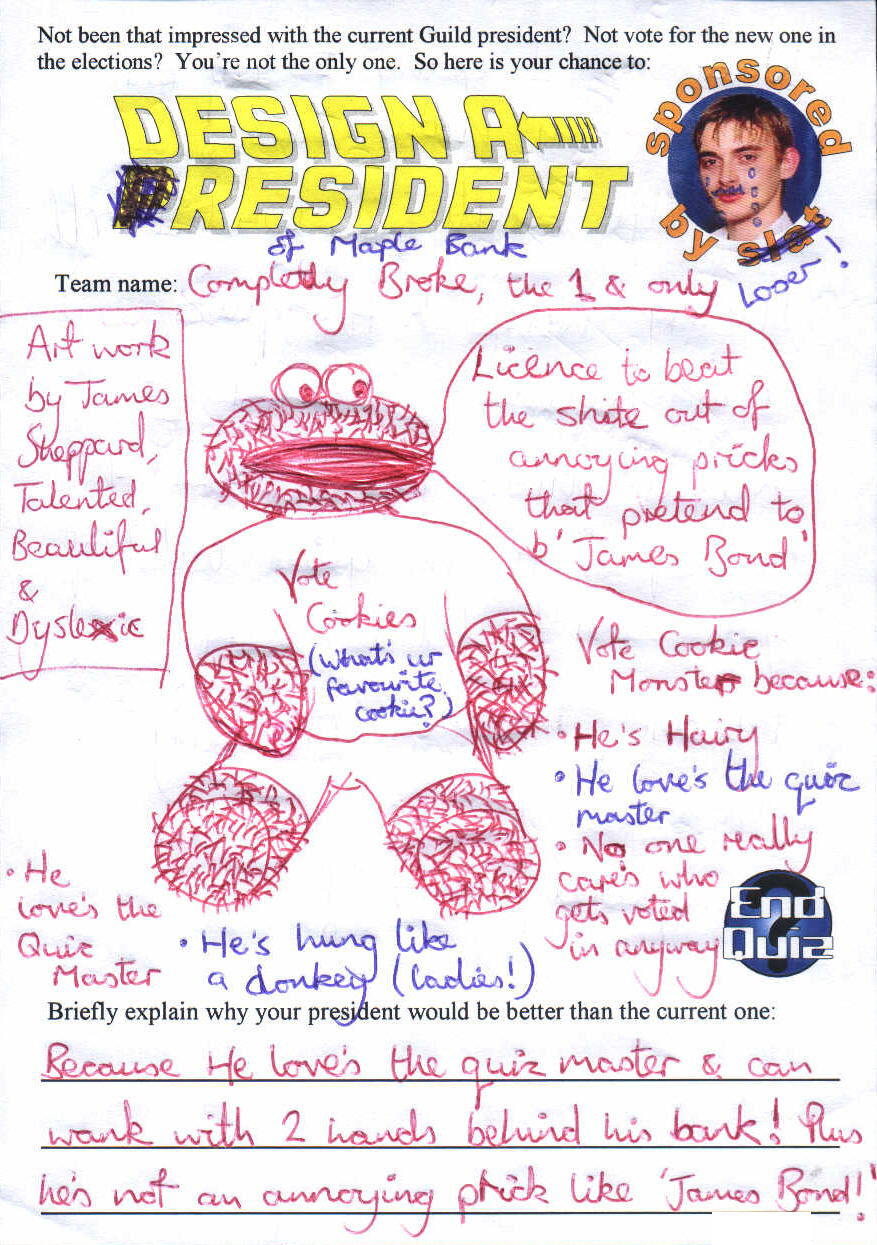 Not been that impressed with the current Guild president? Not vote for the new one in
the elections? You're not the only one. So here is your chance to:
DESIGN A
PRESIDENT
sponsored
by slat
Loser!
of Maple Bank
Team name: Completly Broke, the 1 & only
Art work
by James
Sheppard,
Talented,
Beautiful
&
Dyslexic
Licence to beat
the shite out of
annoying pricks
that pretend to
b 'James Bond'
Vote
Cookies
(What's ur
favourite
cookie?)
Vote Cookie
Monster because:
• He's Hairy
• He love's the quiz
master
• No one really
care's who
gets voted
in anyway
• He
love's the
Quiz
Master
• He's hung like
a donkey (ladies!)
End
Quiz
Briefly explain why your president would be better than the current one:
Because He love's the quiz master & can
wank with 2 hands behind his bank! Plus
he's not an annoying prick like 'James Bond!'